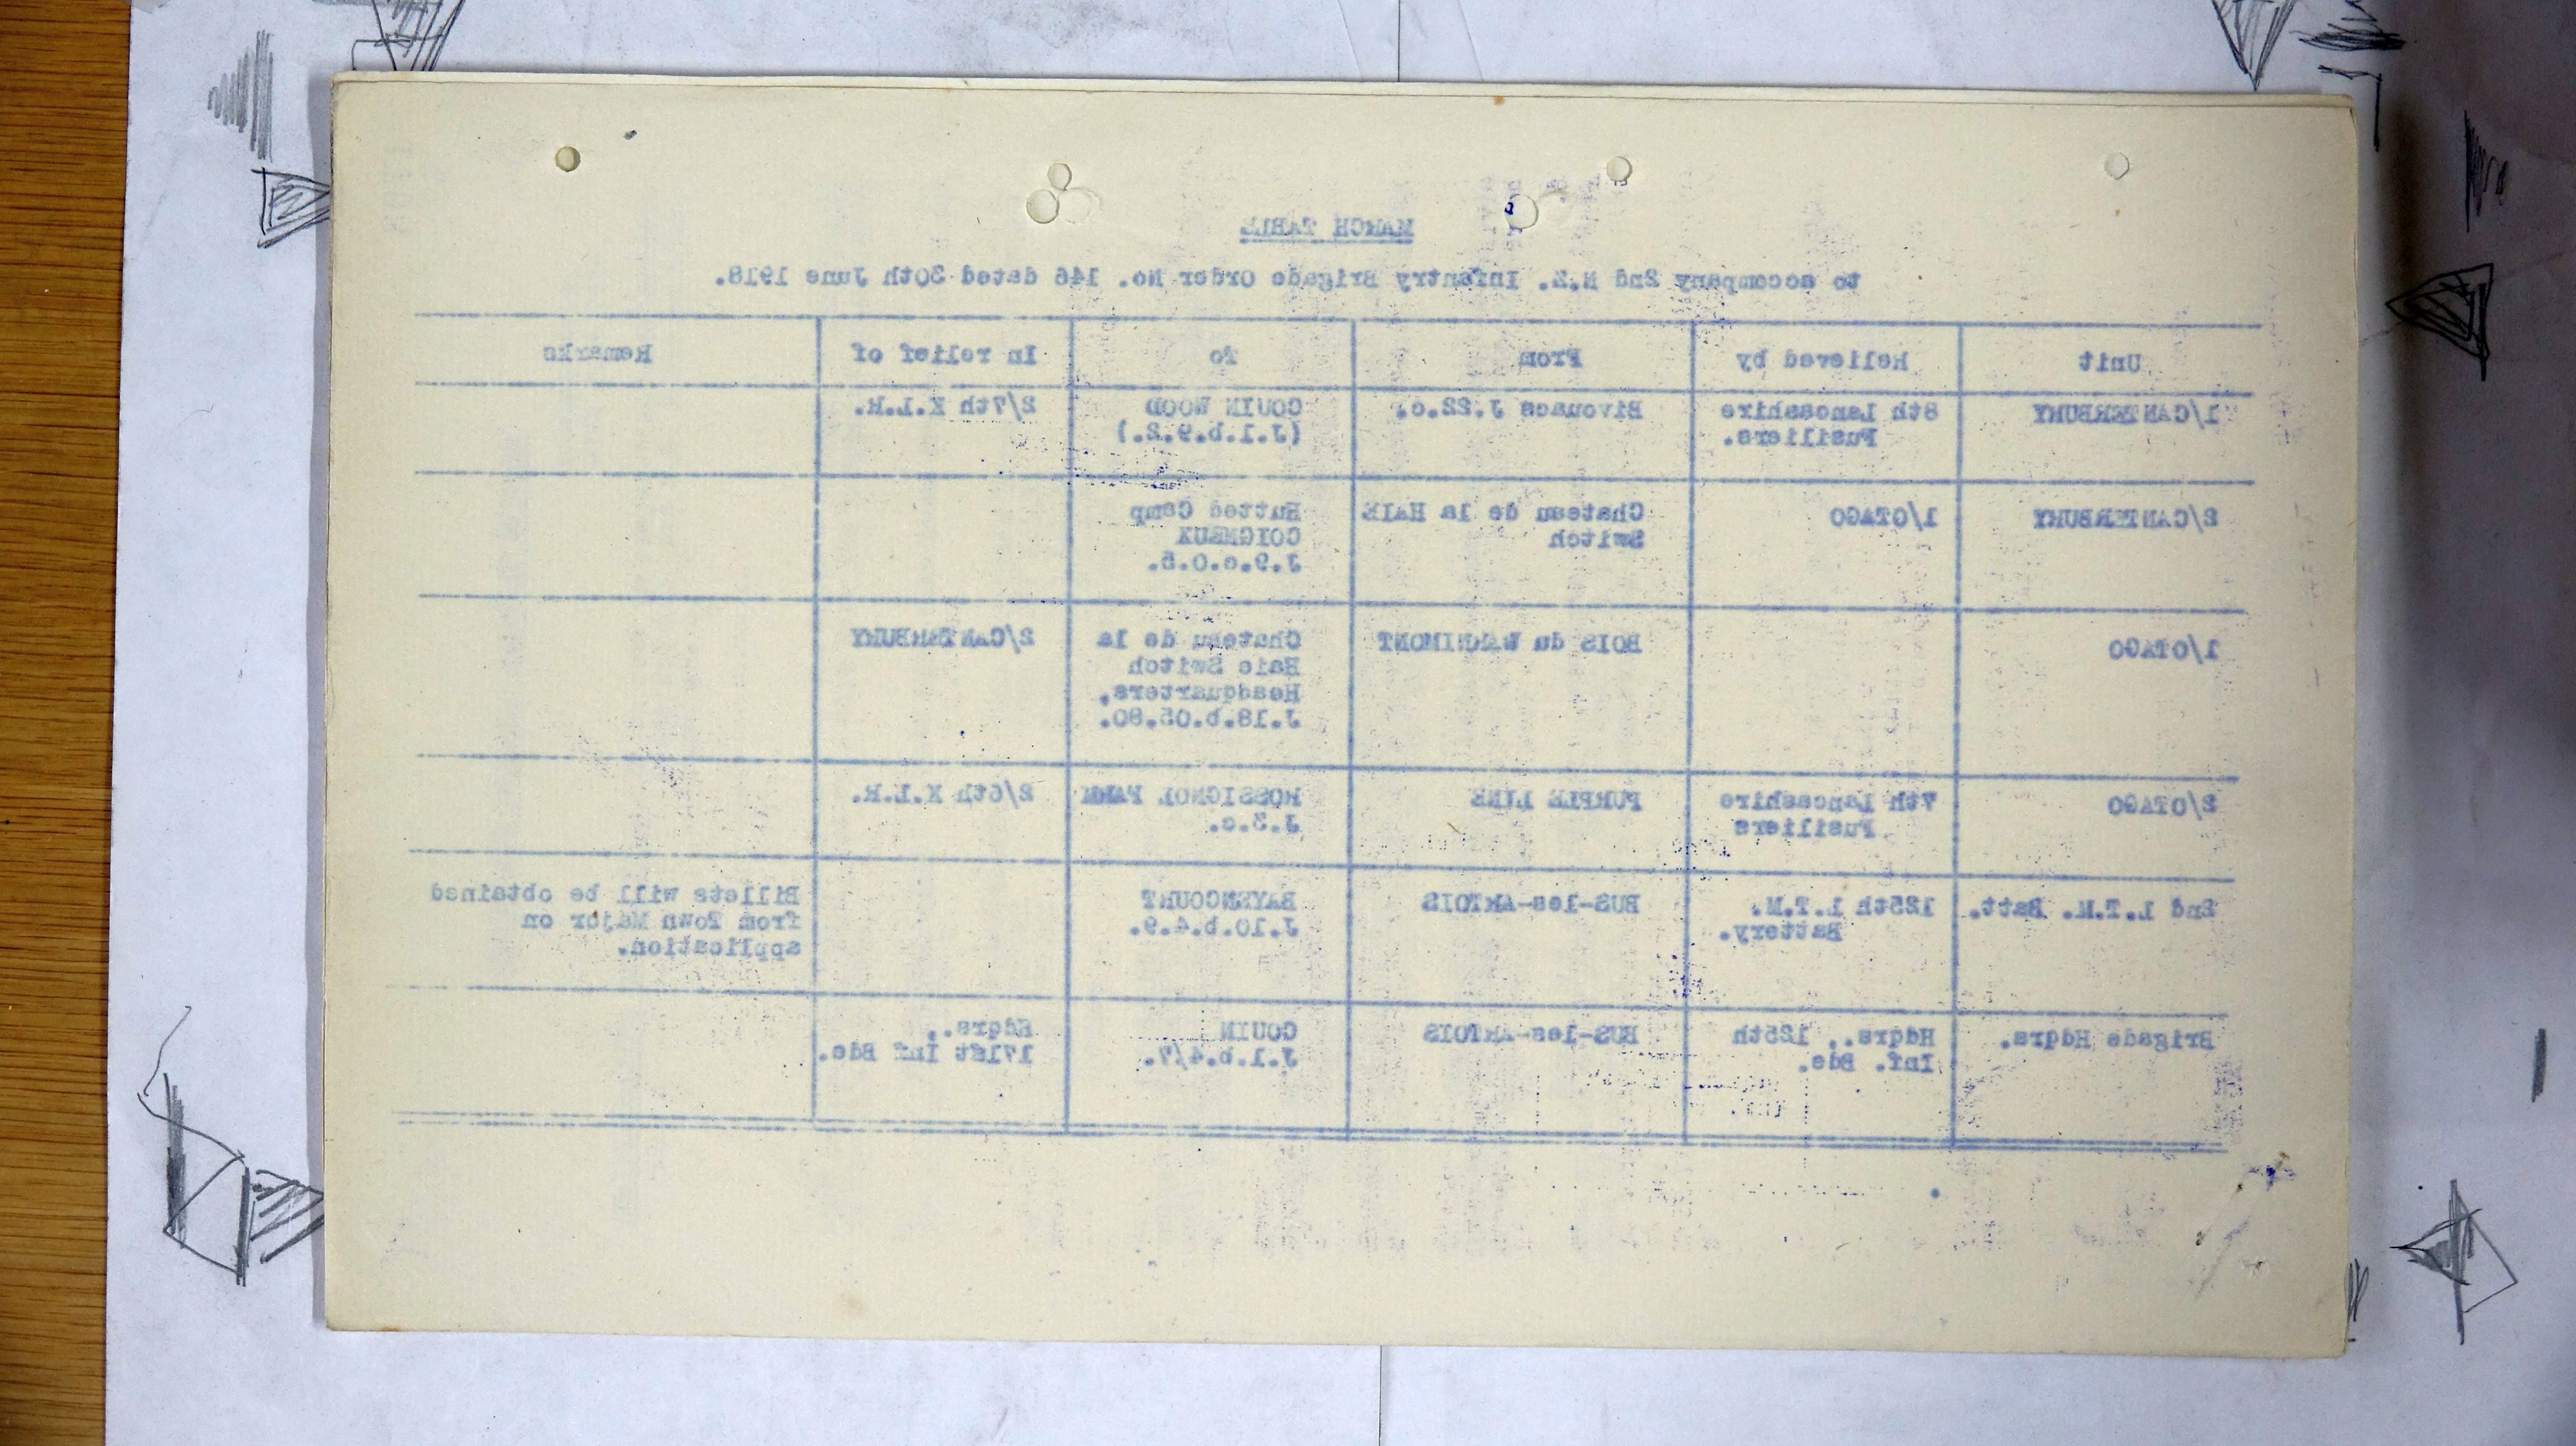 MARCH TABLE
to accompany 2nd N.Z. Infantry Brigade Order No. 146 dated 30th June 1918.
Unit Relieved by From To In relief of Remarks
1/CANTERBURY 8th Lancashire Bivouacs J.22.c. COUIN WOOD 2/7th K.L.R.
Fusiliers. (J.1.b.9.2.)
2/CANTERBURY 1/OTAGO Chateau de la HAIE Hutted Camp
Switch COIGNEUX
J.9.c.0.5.
1/OTAGO BOIS du WARNIMONT Chateau de la 2/CANTERBURY
Haie Switch
Headquarters,
J.18.b.05.80.
2/OTAGO 7th Lancashire PURPLE LINE ROSSIGNOL FARM 2/6th K.L.R.
Fusiliers J.3.c.
2nd L.T.M. Batt. 125th L.T.M. BUS-les-ARTOIS BAYENCOURT Billets will be obtained
Battery. J.10.b.4.9. from Town Major on
application.
Brigade Hdqrs. Hdqrs., 125th BUS-les-ARTOIS COUIN Hdqrs.,
Inf. Bde. J.1.b.4/7. 171st Inf Bde.